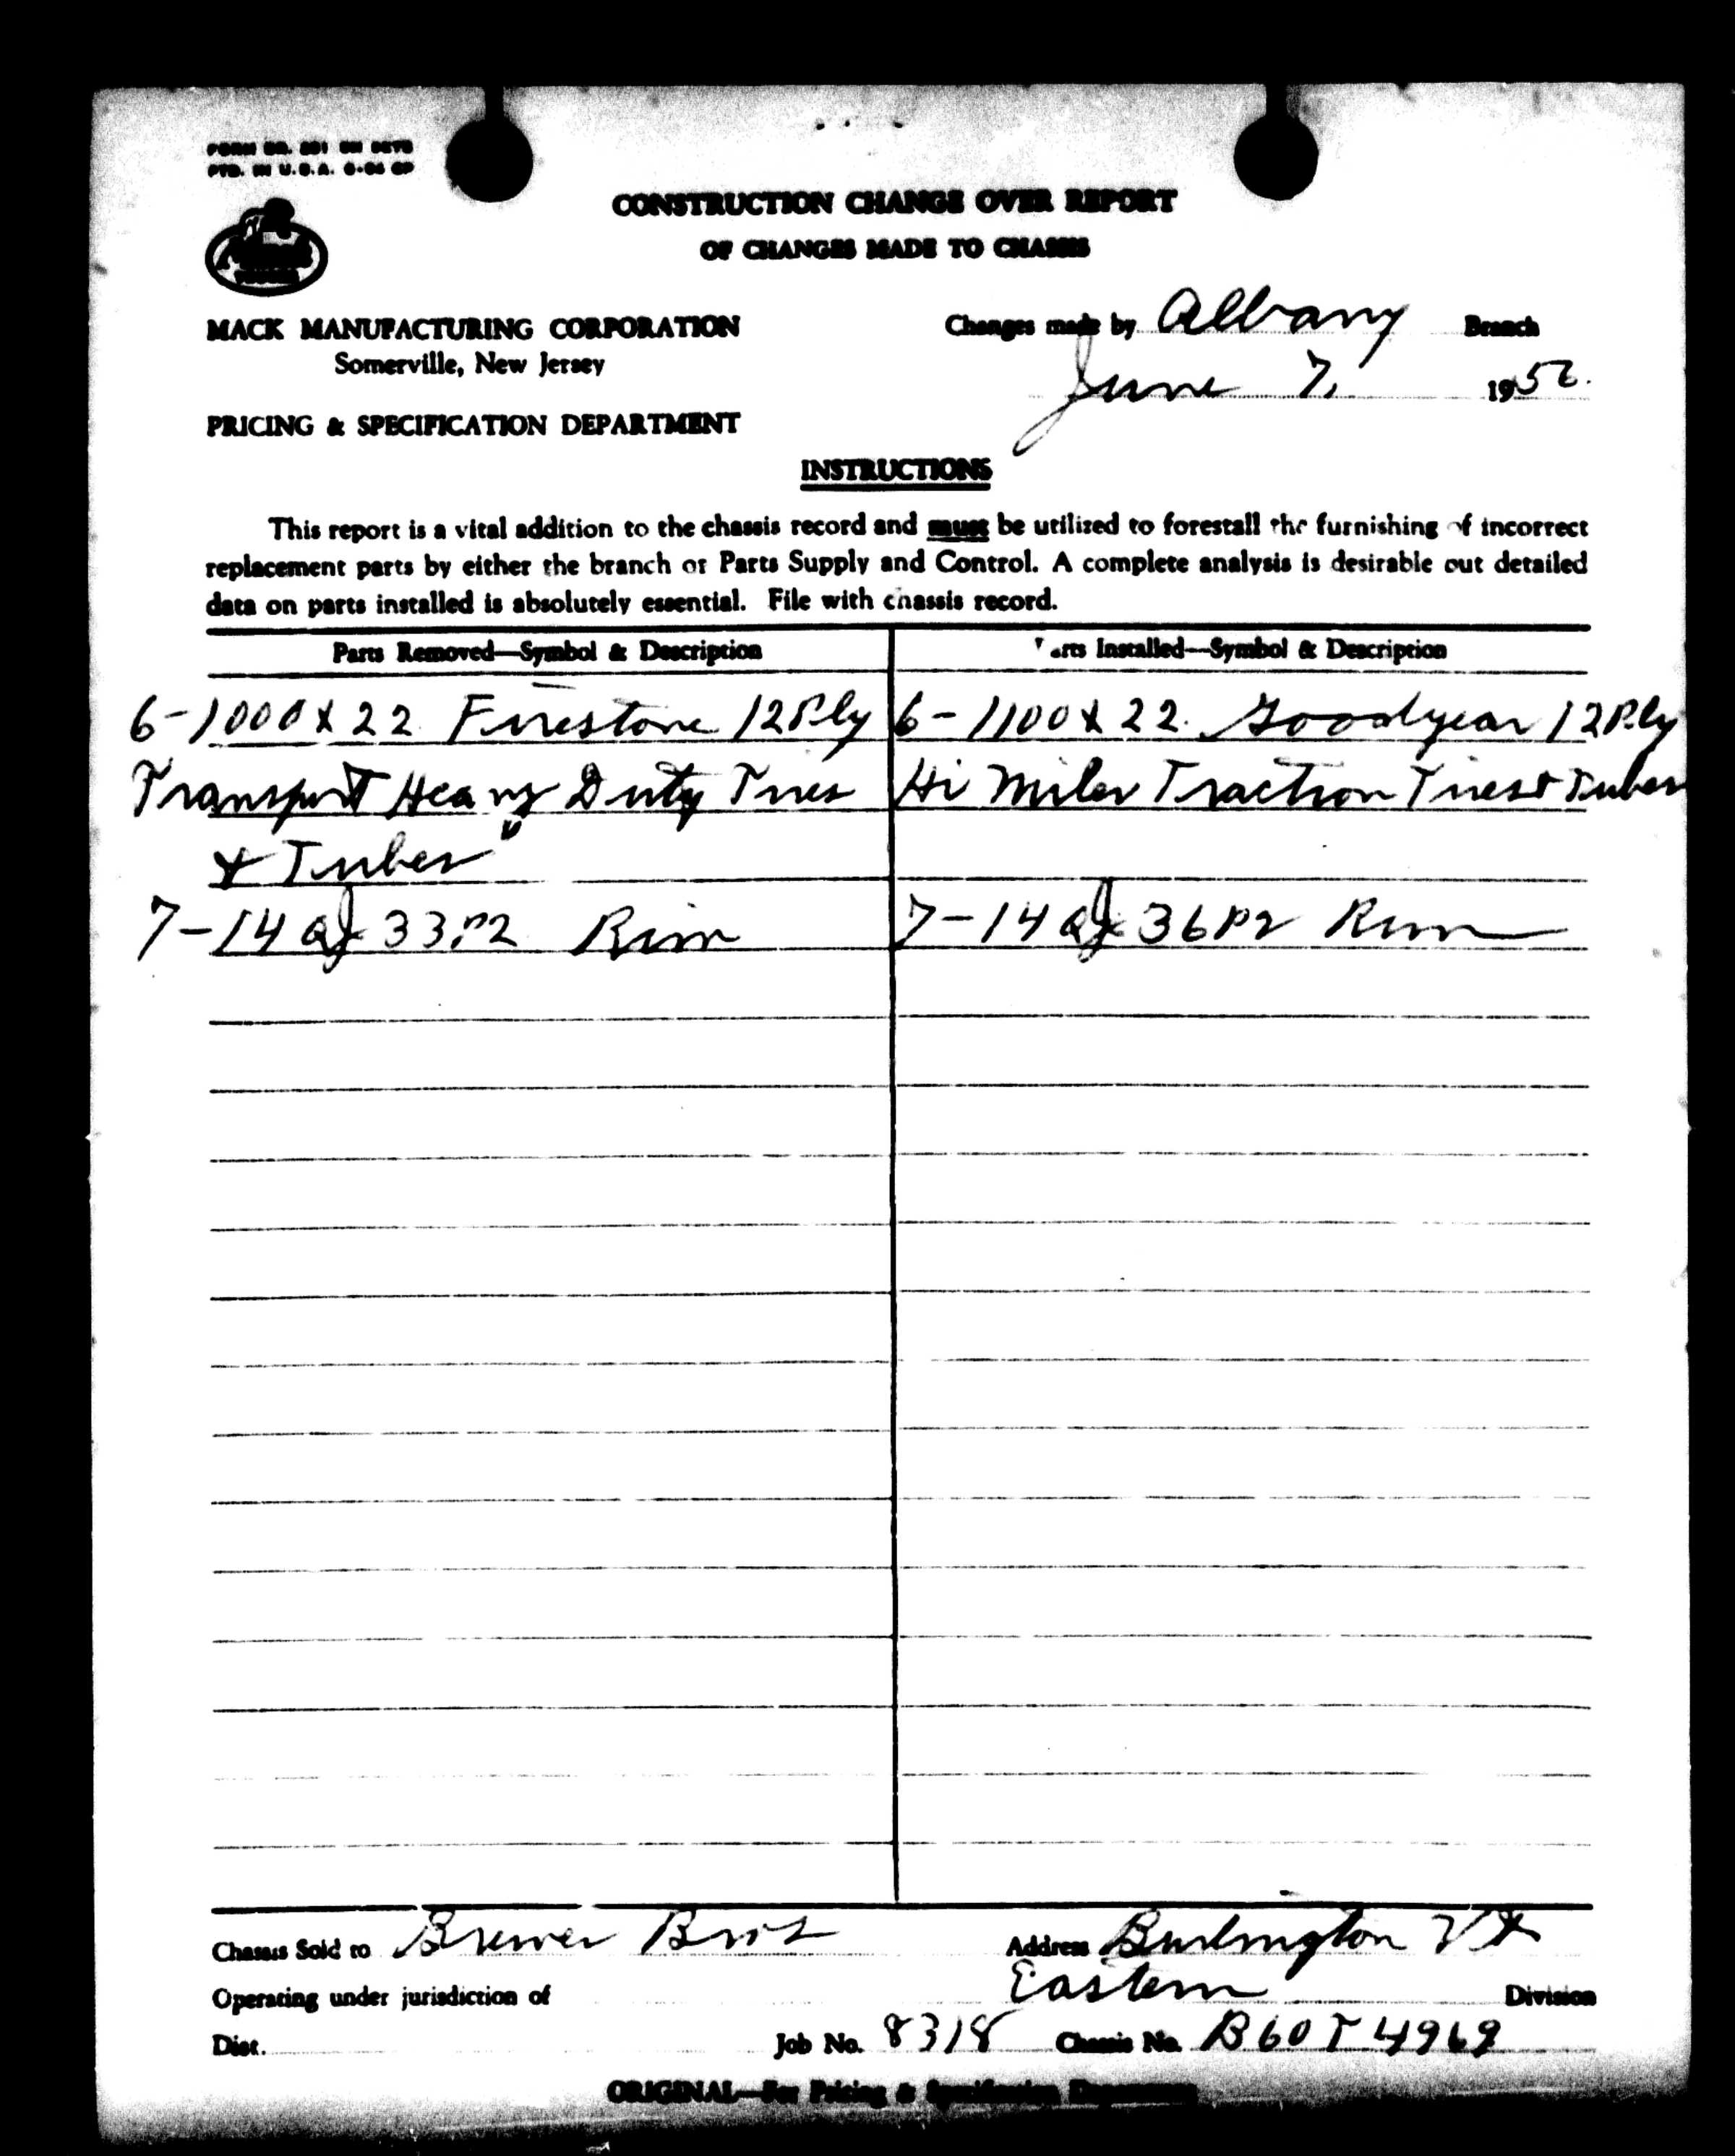 PTD. IN U.S.A.
CONSTRUCTION CHANGE OVER REPORT
OF CHANGES MADE TO CHASSIS
Mack
MACK MANUFACTURING CORPORATION
Somerville, New Jersey
Changes made by Albany Branch
June 7, 195
PRICING & SPECIFICATION DEPARTMENT
INSTRUCTIONS
This report is a vital addition to the chassis record and must be utilized to forestall the furnishing of incorrect
replacement parts by either the branch or Parts Supply and Control. A complete analysis is desirable but detailed
data on parts installed is absolutely essential. File with chassis record.
Parts Removed—Symbol & Description Parts Installed—Symbol & Description
6-1000 x 22 Firestone 12 Ply 6-1100 x 22 Goodyear 12 Ply
Transport Heavy Duty Tires Hi Miler Traction Tires & Tubes
& Tubes
7-14 QJ 33P2 Rim 7-14 QJ 36P2 Rim
Chassis Sold to Brewer Bros Address Burlington Vt
Operating under jurisdiction of Eastern Division
Dist. Job No. 8318 Chassis No. B60T4969
ORIGINAL—For Pricing & Specification Department